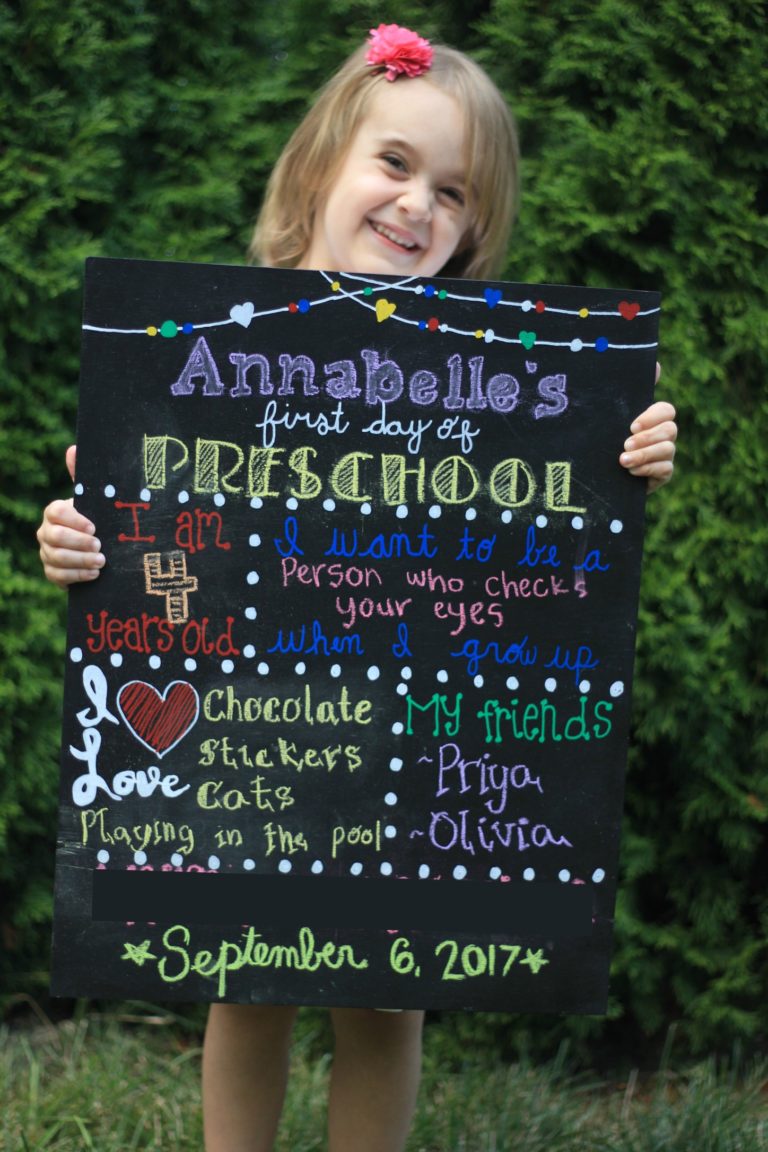 Annabelle's
first day of
PRESCHOOL
I am
4
years old
I want to be a
Person who checks
your eyes
when I grow up
I
Love
Chocolate
Stickers
Cats
Playing in the pool
My friends
~Priya
~Olivia
September 6, 2017